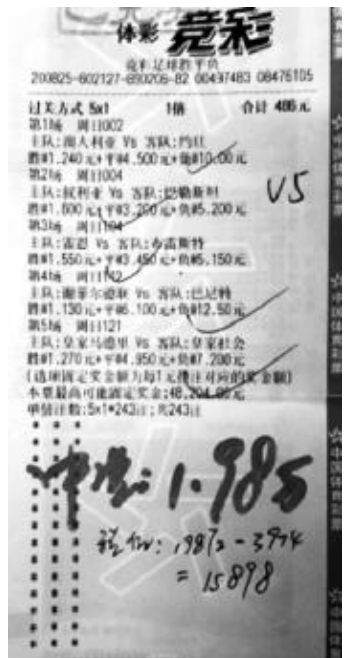 体彩 竞彩
竞彩足球胜平负
200825-602127-890206-82 00497483 08476105
过关方式 5x1 1倍 合计 486元
第1场 周日002
主队:澳大利亚 Vs 客队:约旦
胜@1.240元+平@4.500元+负@10.00元
第2场 周日004
主队:叙利亚 Vs 客队:巴勒斯坦
胜@1.600元+平@3.200元+负@5.200元
V5
第3场 周日104
主队:雷恩 Vs 客队:布雷斯特
胜@1.550元+平@3.450元+负@5.150元
第4场 周日112
主队:谢菲尔德联 Vs 客队:巴尼特
胜@1.130元+平@6.100元+负@12.50元
第5场 周日121
主队:皇家马德里 Vs 客队:皇家社会
胜@1.270元+平@4.950元+负@7.200元
(选项固定奖金额为每1元投注对应的奖金额)
本票最高可能固定奖金:48,204.00元
单倍注数:5x1*243注;共243注
1.985
= 15898
中国体育彩票